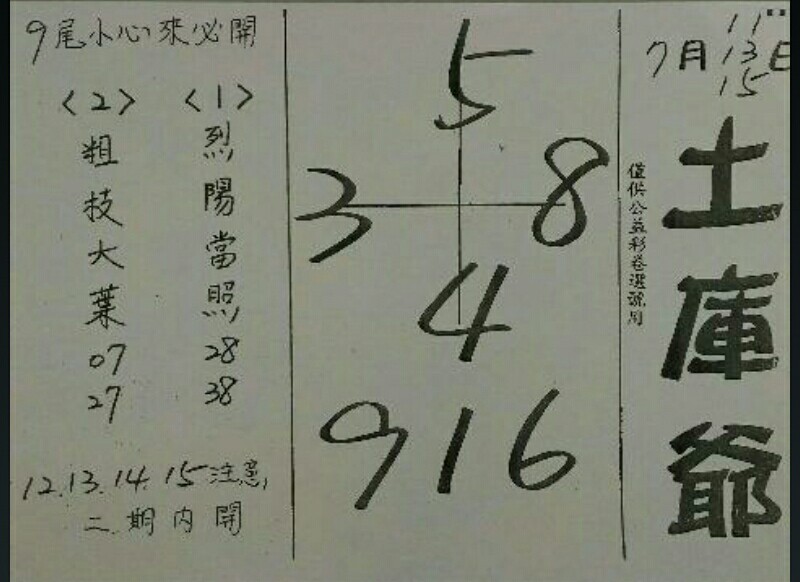 7月11 13 15日
土庫爺
僅供公益彩卷選號用
5
3 8
4
916
9尾小心來必開
〈1〉
烈陽當照
28
38
〈2〉
粗技大葉
07
27
12.13.14.15注意
二期内開